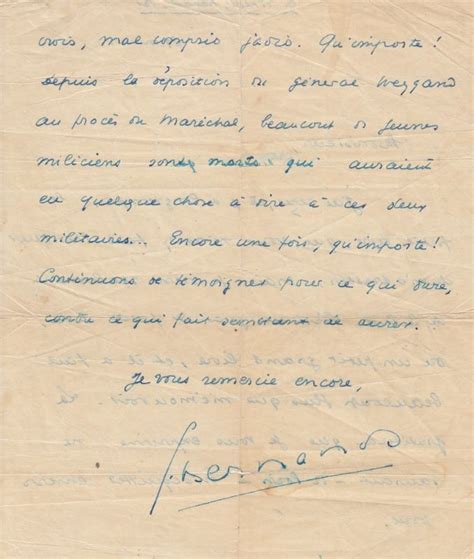 crois, mal compris jadis. Qu'importe!
Depuis la déposition du général Weygand
au procès du Maréchal, beaucoup de jeunes
miliciens sont morts, qui auraient
eu quelque chose à dire à ces deux
militaires... Encore une fois, qu'importe!
Continuons de témoigner pour ce qui dure,
contre ce qui fait semblant de durer.
Je vous remercie encore,